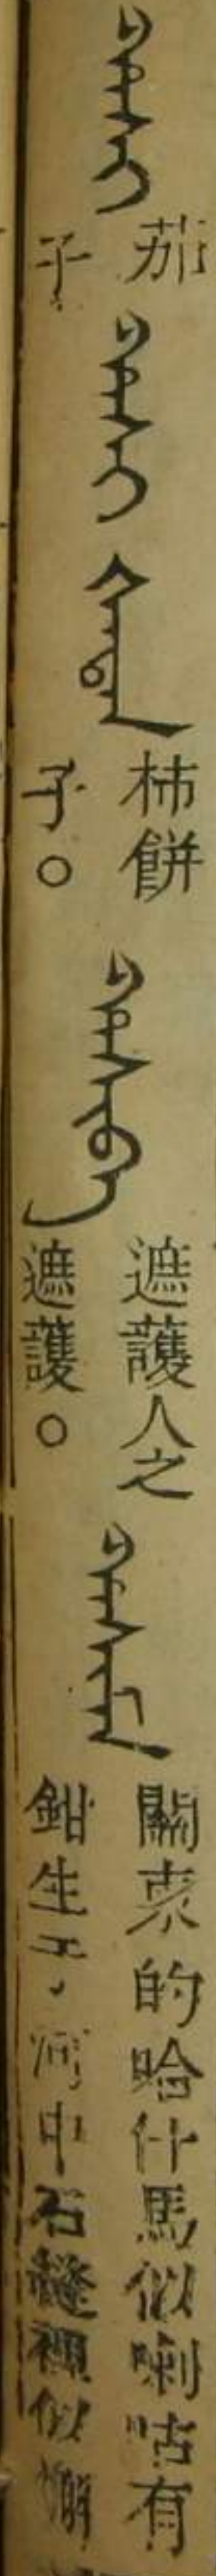 ᡥᠠᠰᡳ
茄
子
ᡥᠠᠰᡳ ᡝᡶᡝᠨ
柿餅
子○
ᡥᠠᠰᡳᠪᠠ
遮護人之
遮護○
ᡥᠠᠰᡳᠮᠠ
關東的哈什馬似喇咕有
鉗生于河中石縫裡似